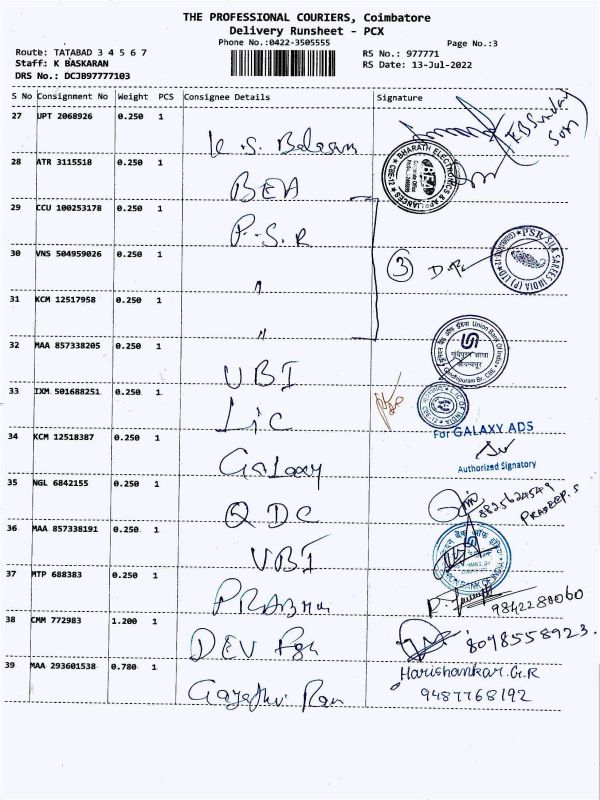 THE PROFESSIONAL COURIERS, Coimbatore
Delivery Runsheet - PCX
Phone No.:0422-3505555
Page No.:3
Route: TATABAD 3 4 5 6 7
RS No.: 977771
Staff: K BASKARAN
RS Date: 13-Jul-2022
DRS No.: DCJB97777103
S No Consignment No Weight PCS Consignee Details Signature
27 UPT 2068926 0.250 1
K.S. Balasam
28 ATR 3115518 0.250 1
BEA
BHARATH ELECTRONICS & APPLIANCES
CBE-12
29 CCU 100253178 0.250 1
P.S.R
30 VNS 504959026 0.250 1
"
3
P.S.R. SILK SAREES INDIA (P) LTD
31 KCM 12517958 0.250 1
"
32 MAA 857338205 0.250 1
UBI
Union Bank Of India
Gandhipuram Br., CBE
33 IXM 501688251 0.250 1
LIC
34 KCM 12518387 0.250 1
Galaxy
For GALAXY ADS
Authorized Signatory
35 NGL 6842155 0.250 1
QDC
8825624549
PRADEEP.S
36 MAA 857338191 0.250 1
UBI
37 MTP 688383 0.250 1
PRABHU
9842280060
38 CMM 772983 1.200 1
DEV
8098558923.
39 MAA 293601538 0.780 1
Gayathri Ram
Harishankar.G.R
9487768192